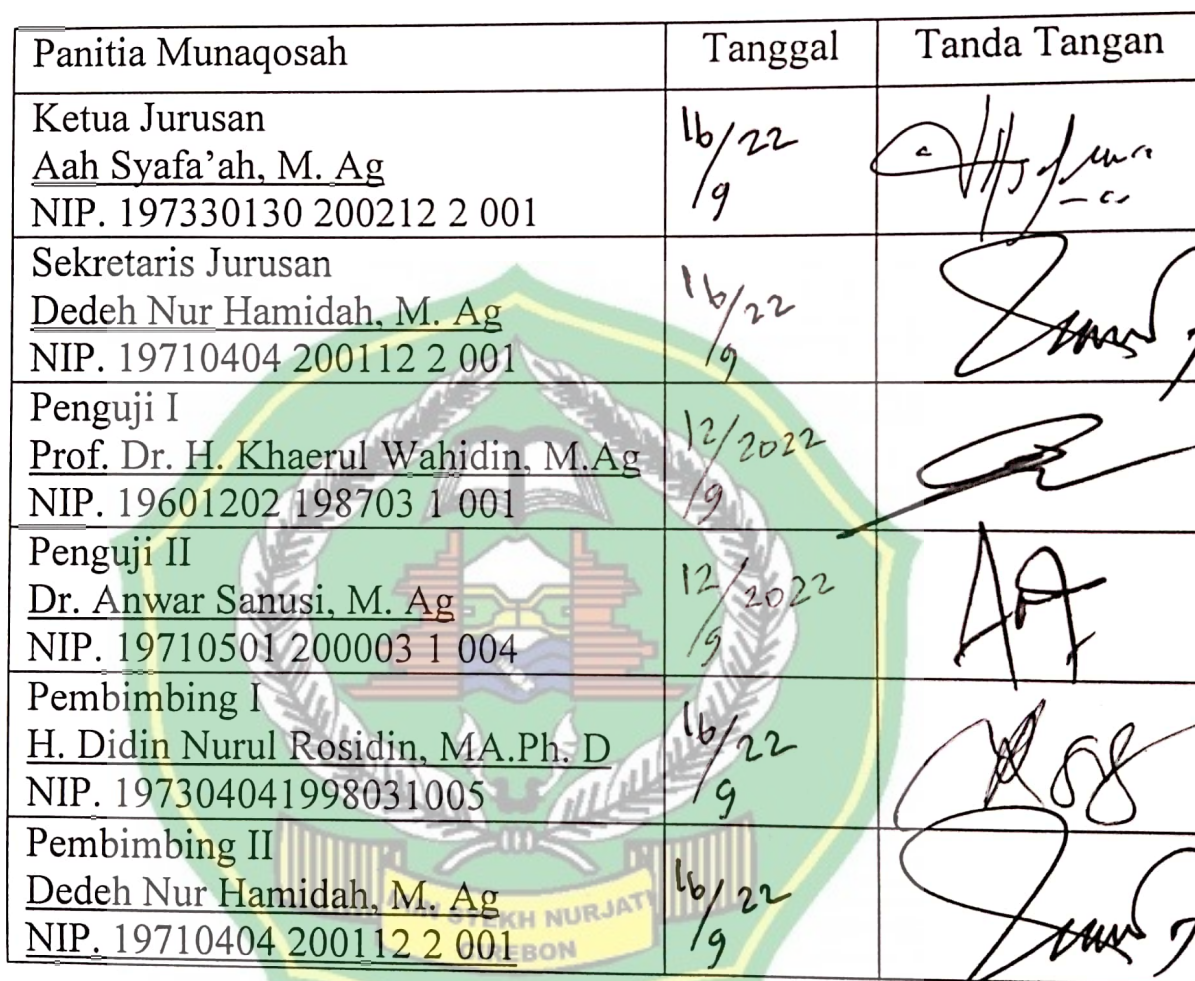 Panitia Munaqosah Tanggal Tanda Tangan
Ketua Jurusan
Aah Syafa'ah, M. Ag
NIP. 197330130 200212 2 001
16/22
/9
Sekretaris Jurusan
Dedeh Nur Hamidah, M. Ag
NIP. 19710404 200112 2 001
16/22
/9
Penguji I
Prof. Dr. H. Khaerul Wahidin, M.Ag
NIP. 19601202 198703 1 001
12/2022
/9
Penguji II
Dr. Anwar Sanusi, M. Ag
NIP. 19710501 200003 1 004
12/2022
/9
Pembimbing I
H. Didin Nurul Rosidin, MA.Ph. D
NIP. 197304041998031005
16/22
/9
Pembimbing II
Dedeh Nur Hamidah, M. Ag
NIP. 19710404 200112 2 001
16/22
/9
SYEKH NURJATI
CIREBON